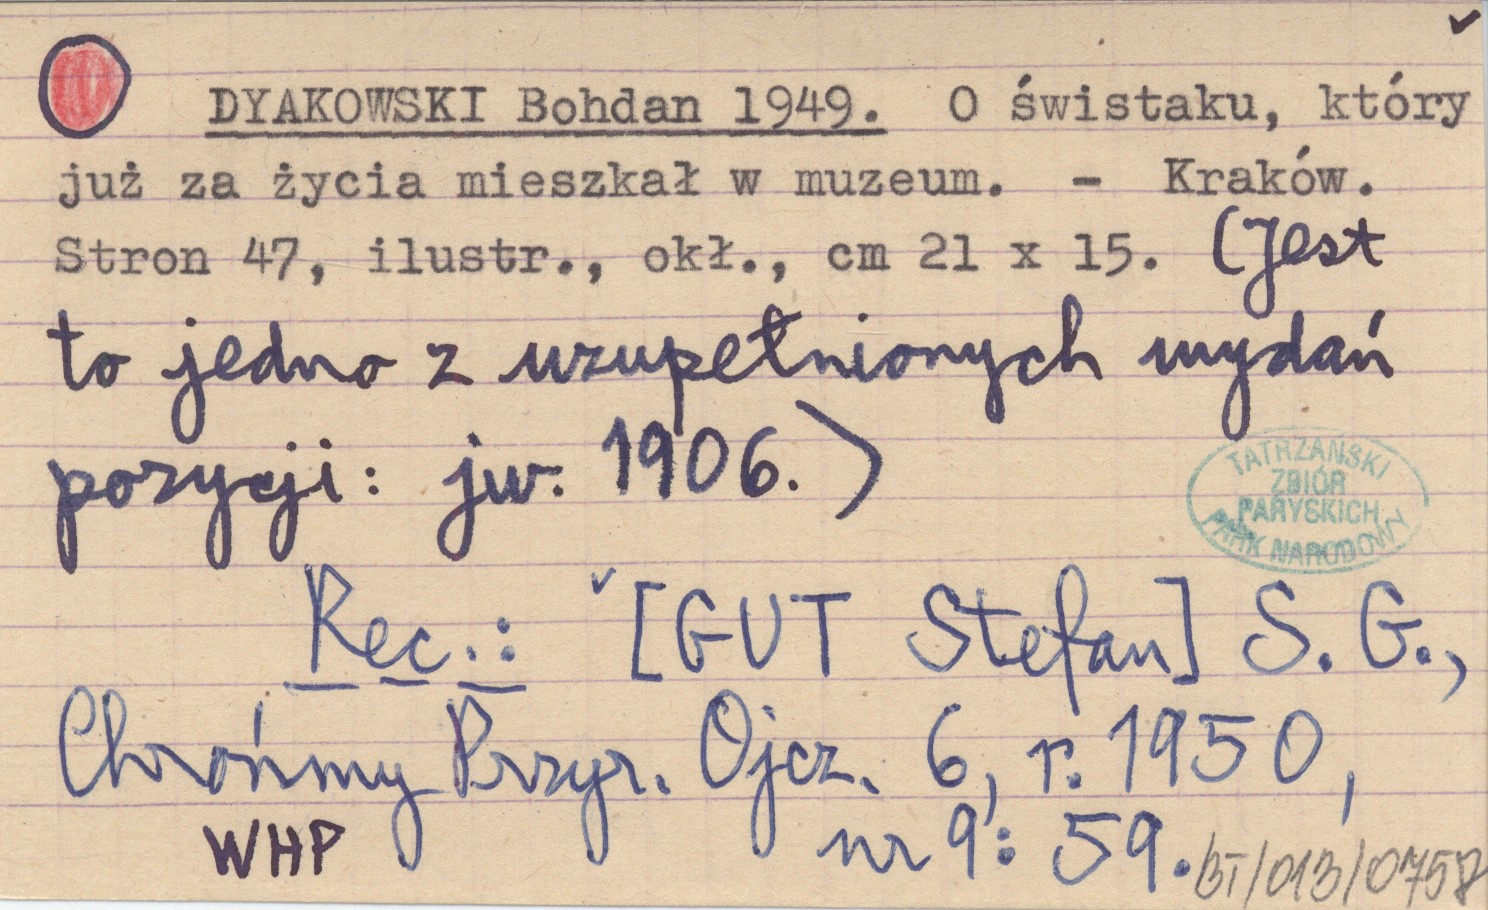 DYAKOWSKI Bohdan 1949. O świstaku, który
już za życia mieszkał w muzeum. - Kraków.
Stron 47, ilustr., okł., cm 21 x 15. (Jest
to jedno z uzupełnionych wydań
pozycji: jw. 1906.)
TATRZAŃSKI
ZBIÓR
PARYSKICH
PARK NARODOWY
Rec.: [GUT Stefan] S. G.,
Chrońmy Przyr. Ojcz. 6, r. 1950,
WHP nr 9: 59.
BT/013/0758